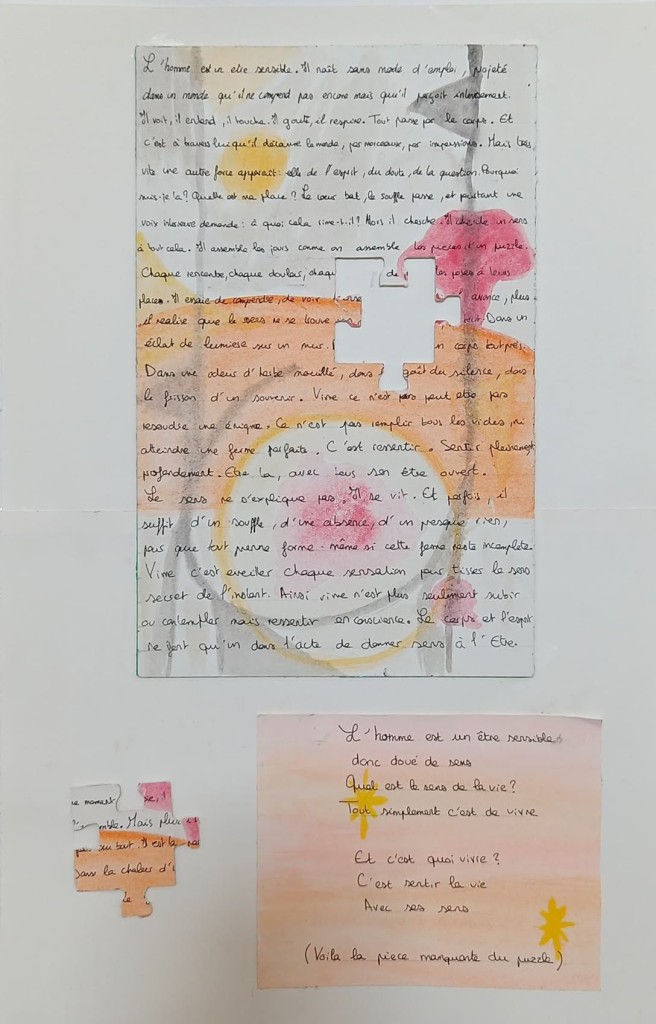 L'homme est un etre sensible. Il naît sans mode d'emploi, projeté
dans un monde qu'il ne comprend pas encore mais qu'il perçoit intensement.
Il voit, il entend, il touche. Il goute, il respire. Tout passe par le corps. Et
c'est à travers lui qu'il découvre le monde, par morceaux, par impressions. Mais tres
vite une autre force apparaît: elle de l'esprit, du doute, de la question. Pourquoi
suis-je là? Quelle est ma place? Le coeur bat, le souffle passe, et pourtant une
voix interieure demande: à quoi cela rime-t-il? Alors il cherche. Il cherche un sens
à tout cela. Il assemble les jours comme on assemble les pieces d'un puzzle.
Chaque rencontre, chaque douleur, chaqu de les poses à leurs
places. Il essaie de comprendre, de voir l'ense avance, plus
il realise que le sens ne se trouve but. Dans un
éclat de lumiere sur un mur. n corps tout près.
Dans une odeur d'herbe mouillé, dans goût du silence, dans
le frisson d'un souvenir. Vivre ce n'est pas peut etre pas
resoudre une énigme. Ce n'est pas remplir tous les vides, ni
atteindre une forme parfaite. C'est ressentir. Sentir pleinement
profondement. Etre la, avec tous son être ouvert.
Le sens ne s'explique pas. Il se vit. Et parfois, il
suffit d'un souffle, d'une absence, d'un presque rien,
pour que tout prenne forme. même si cette forme reste incomplete.
Vivre c'est eveiller chaque sensation pour tisser le sens
secret de l'instant. Ainsi vivre n'est plus seulement subir
ou contempler mais ressentir en conscience. Le corps et l'esprit
ne font qu'un dans l'acte de donner sens à l'Etre.
ue moment se, i
mble. Mais plus
un but. Il est la
Dans la chaleur d'
le
L'homme est un être sensible
donc doué de sens
Quel est le sens de la vie?
Tout simplement c'est de vivre
Et c'est quoi vivre?
C'est sentir la vie
Avec ses sens
(Voila la piece manquante du puzzle)